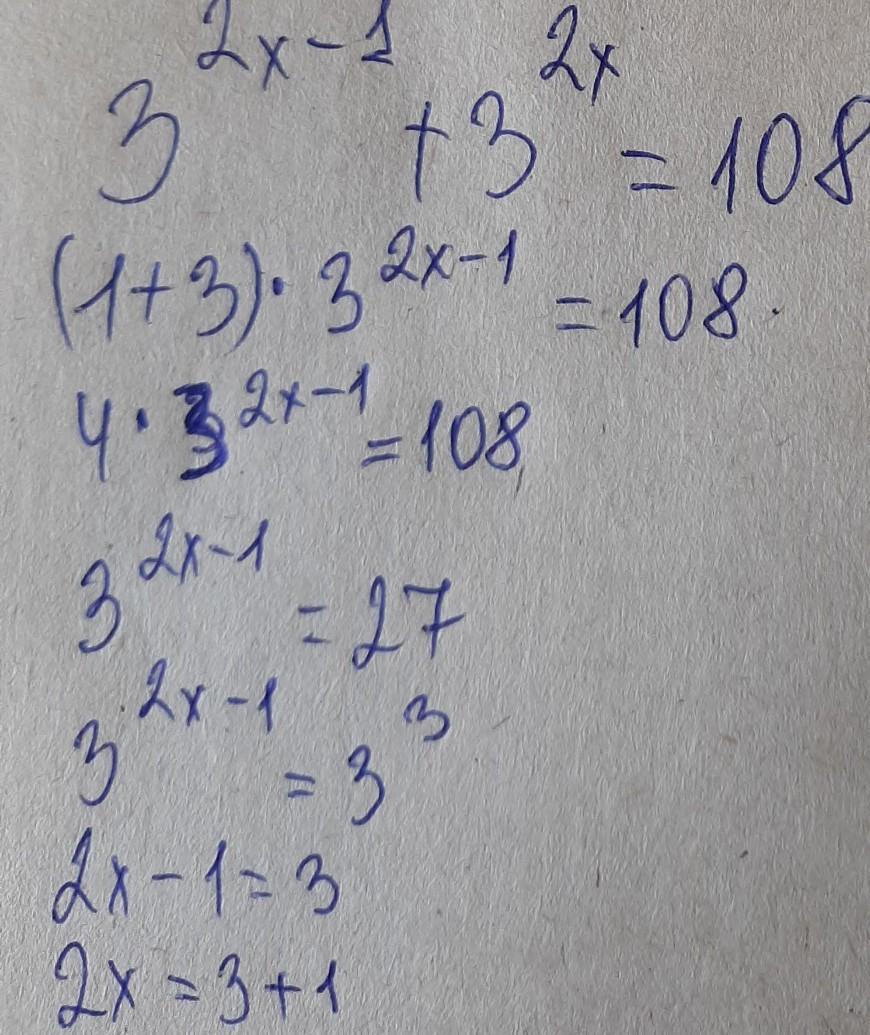 3^{2x-1} + 3^{2x} = 108
(1+3)·3^{2x-1} = 108.
4·3^{2x-1} = 108
3^{2x-1} = 27
3^{2x-1} = 3^3
2x-1=3
2x=3+1